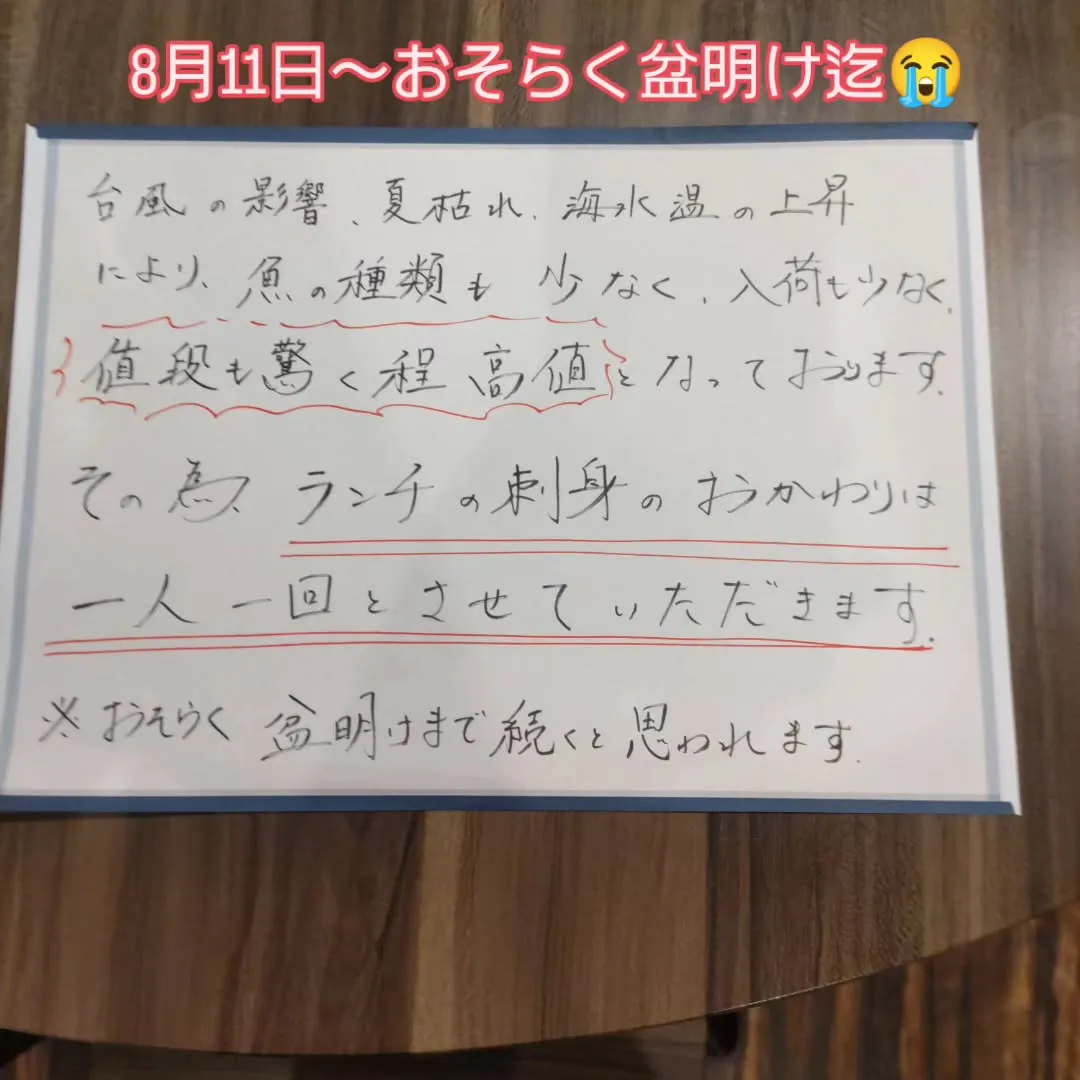 8月11日〜おそらく盆明け迄😭
台風の影響、夏枯れ、海水温の上昇
により、魚の種類も少なく、入荷も少なく、
値段も驚く程高値となっております。
その為、ランチの刺身のおかわりは
一人一回とさせていただきます。
※おそらく盆明けまで続くと思われます。